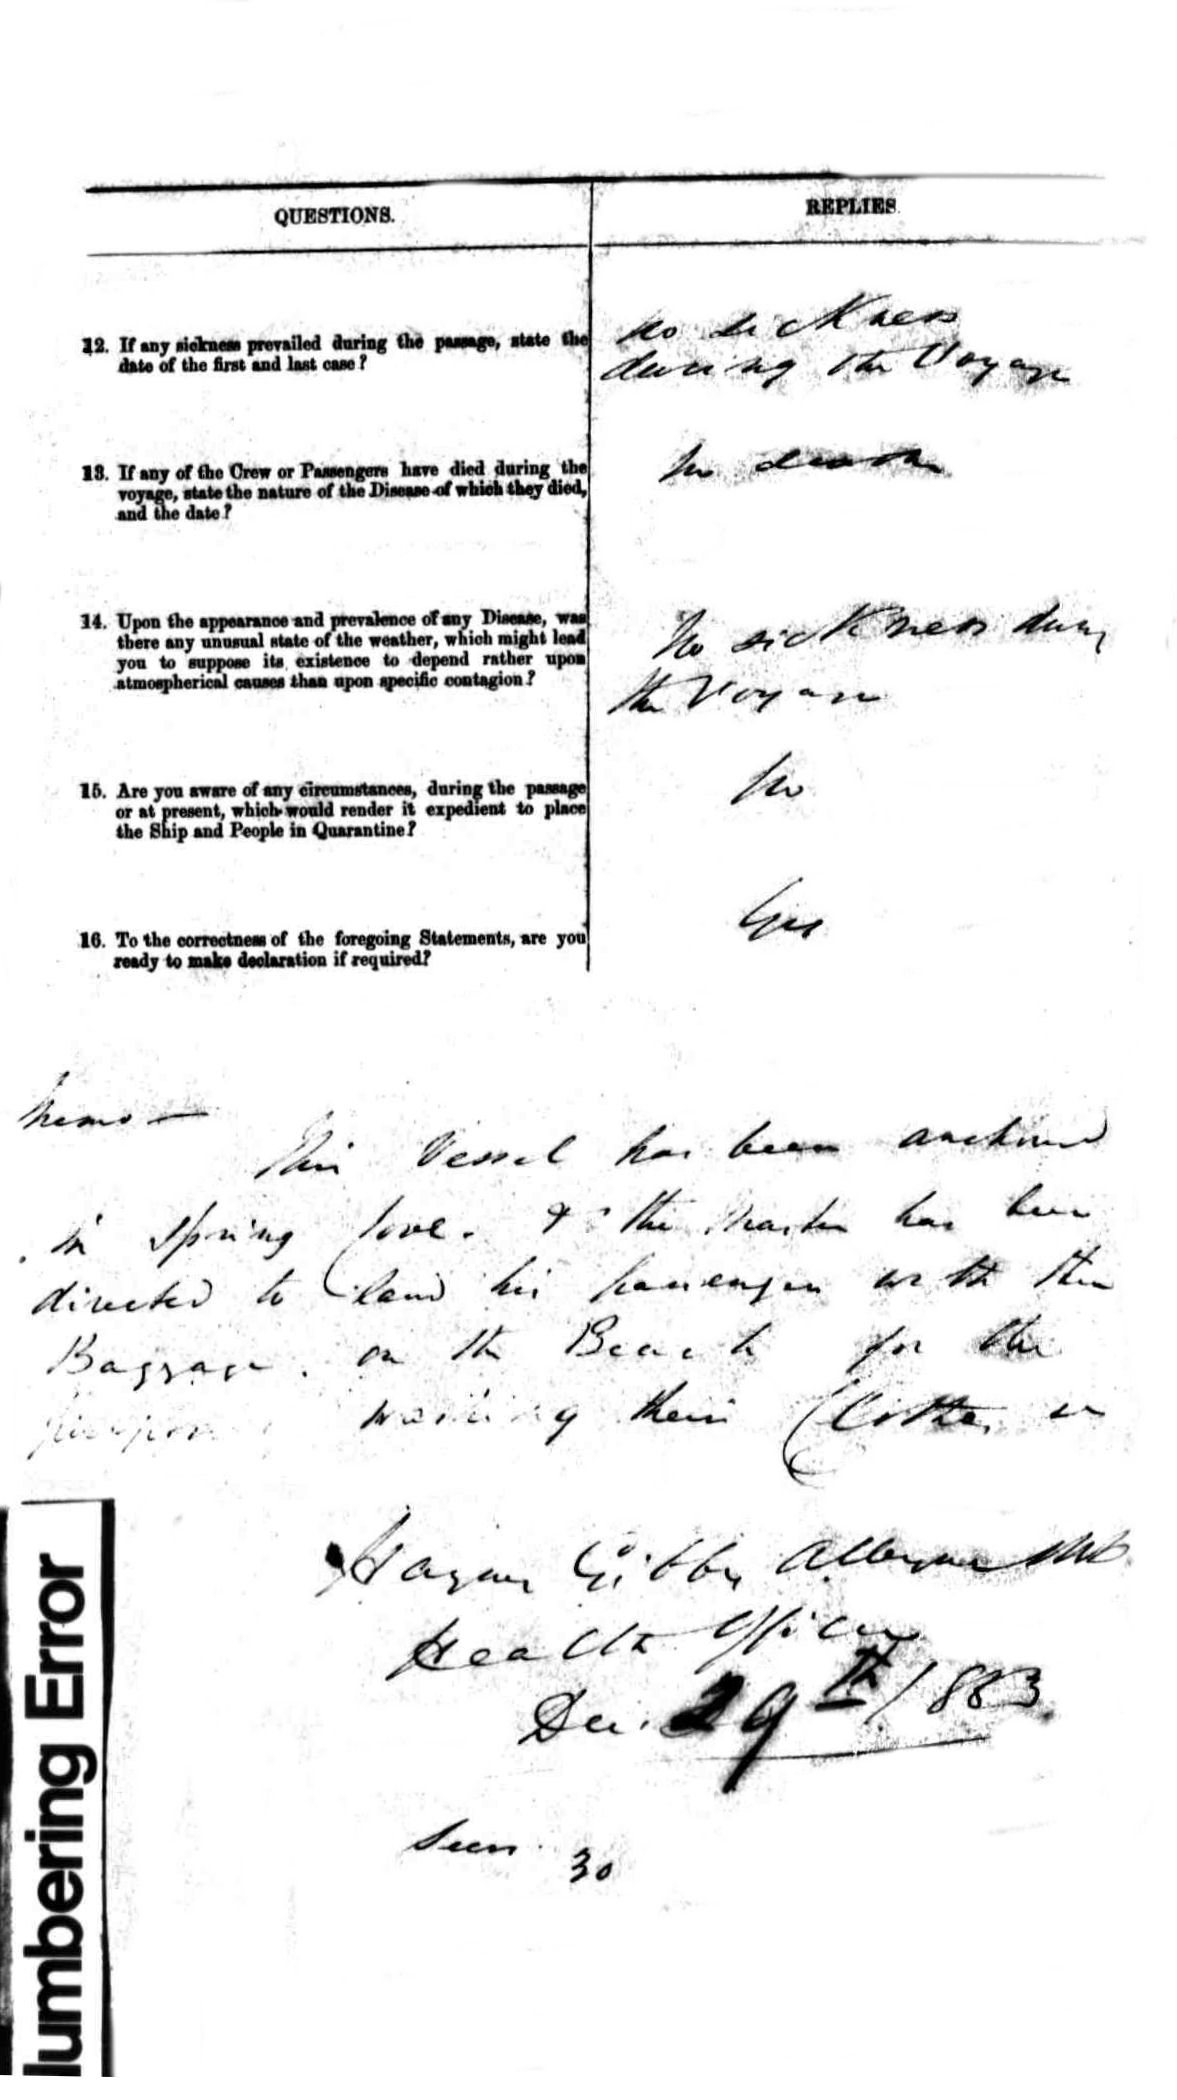 QUESTIONS.
REPLIES
12. If any sickness prevailed during the passage, state the
date of the first and last case?
No sickness
during the Voyage
13. If any of the Crew or Passengers have died during the
voyage, state the nature of the Disease of which they died,
and the date?
No death
14. Upon the appearance and prevalence of any Disease, was
there any unusual state of the weather, which might lead
you to suppose its existence to depend rather upon
atmospherical causes than upon specific contagion?
No sickness during
the Voyage
15. Are you aware of any circumstances, during the passage
or at present, which would render it expedient to place
the Ship and People in Quarantine?
No
16. To the correctness of the foregoing Statements, are you
ready to make declaration if required?
Yes
Memo —
This Vessel has been anchored
in Spring Cove. & the Master has been
directed to land his passengers with their
Baggage. on the Beach for the
purpose washing their Clothes
Haynes Gibbes Alleyne MD
Health Officer
Dec. 29th/1883
Seen 30
lumbering Error